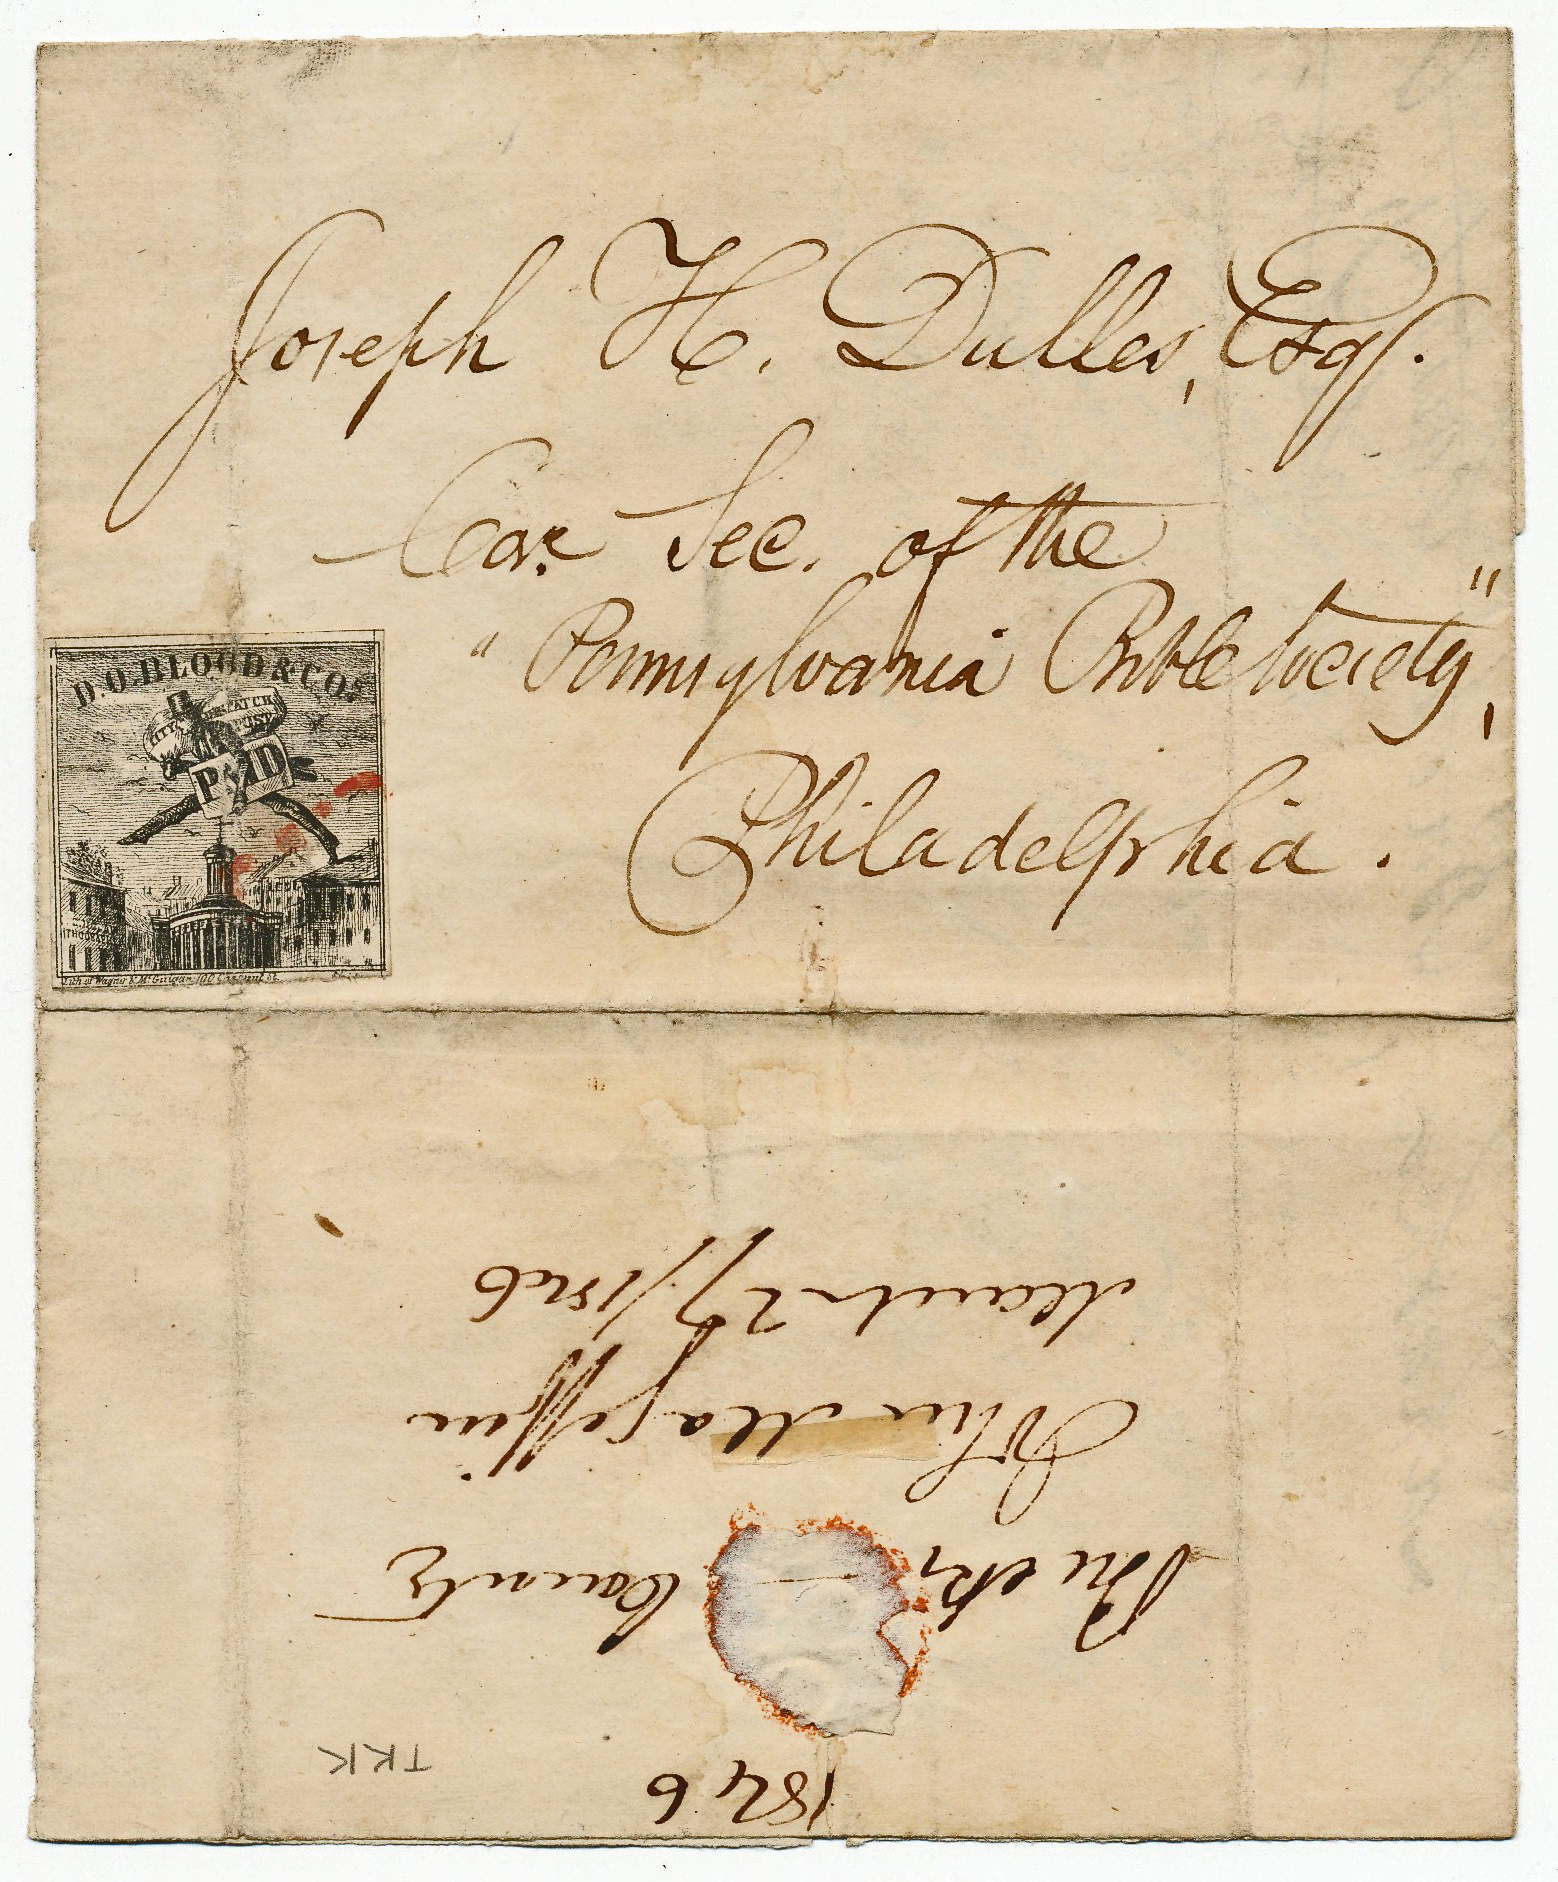 Joseph H. Dulles, Esqr.
Cor. Sec. of the
"Pennsylvania Bible Society",
Philadelphia.
D.O. BLOOD & Co's
CITY DESPATCH
POST
PAID
Lith of Wagner & McGuigan 100 Chesnut St.
1846
Bucks County
John Magoffin
March 27/1846
TKK